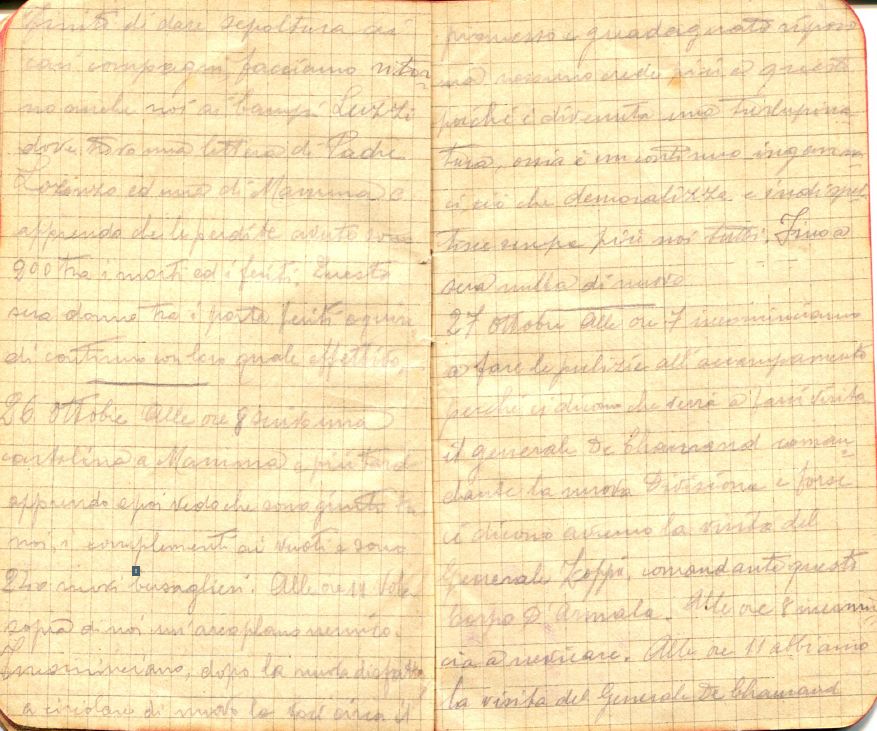 finito di dare sepoltura ai
cari compagni, facciamo ritor=
no anche noi ai Campi Luzzi
dove trovo una lettera di Padre
Lorenzo ed una di Mamma e
apprendo che le perdite avute sono
200 tra i morti ed i feriti. Questa
sera danno tra i porta feriti
di continuo con loro quale effettivo.
26 Ottobre Alle ore 8 scrivo una
cartolina a Mamma e più tardi
apprendo e poi vedo che sono giunti tra
noi, i complementi ai vuoti e sono
250 nuovi bersaglieri. Alle ore 11 vola
sopra di noi un'areoplano nemico.
Incominciano, dopo la nuova
a circolare di nuovo le voci circa il
promesso e guadagnato riposo
ma nessuno crede più a questo
poichè è divenuta una turlupina=
tura, ossia è un continuo ingannar=
ci, ciò che demoralizza e indispet=
tisce sempre più noi tutti. Fino a
sera nulla di nuovo
27 Ottobre Alle ore 7 incominciamo
a fare le pulizie all'accampamento
perchè ci dicono che verrà a farci visita
il generale De Chaurand coman=
dante la nuova Divisione e forse
ci dicono avremo la visita del
Generale Zoppi, comandante questo
Corpo D'Armata. Alle ore 8 incomin=
cia a nevicare. Alle ore 11 abbiamo
la visita del Generale De Chaurand